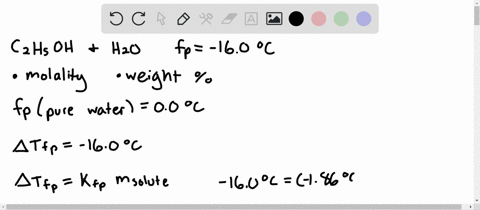 C₂H₅OH + H₂O fp = -16.0 °C
• molality • weight %
fp (pure water) = 0.0 °C
ΔTfp = -16.0 °C
ΔTfp = Kfp msolute -16.0 °C = (-1.86 °C